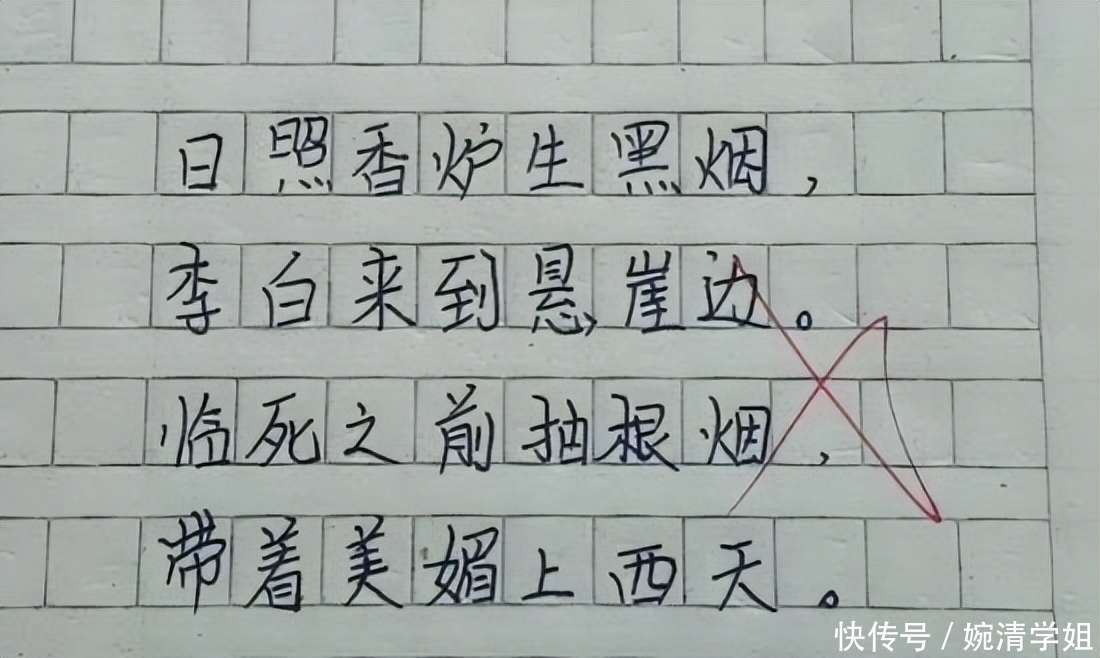 日照香炉生黑烟，
李白来到悬崖边。
临死之前抽根烟，
带着美媚上西天。
快传号 / 婉清学姐